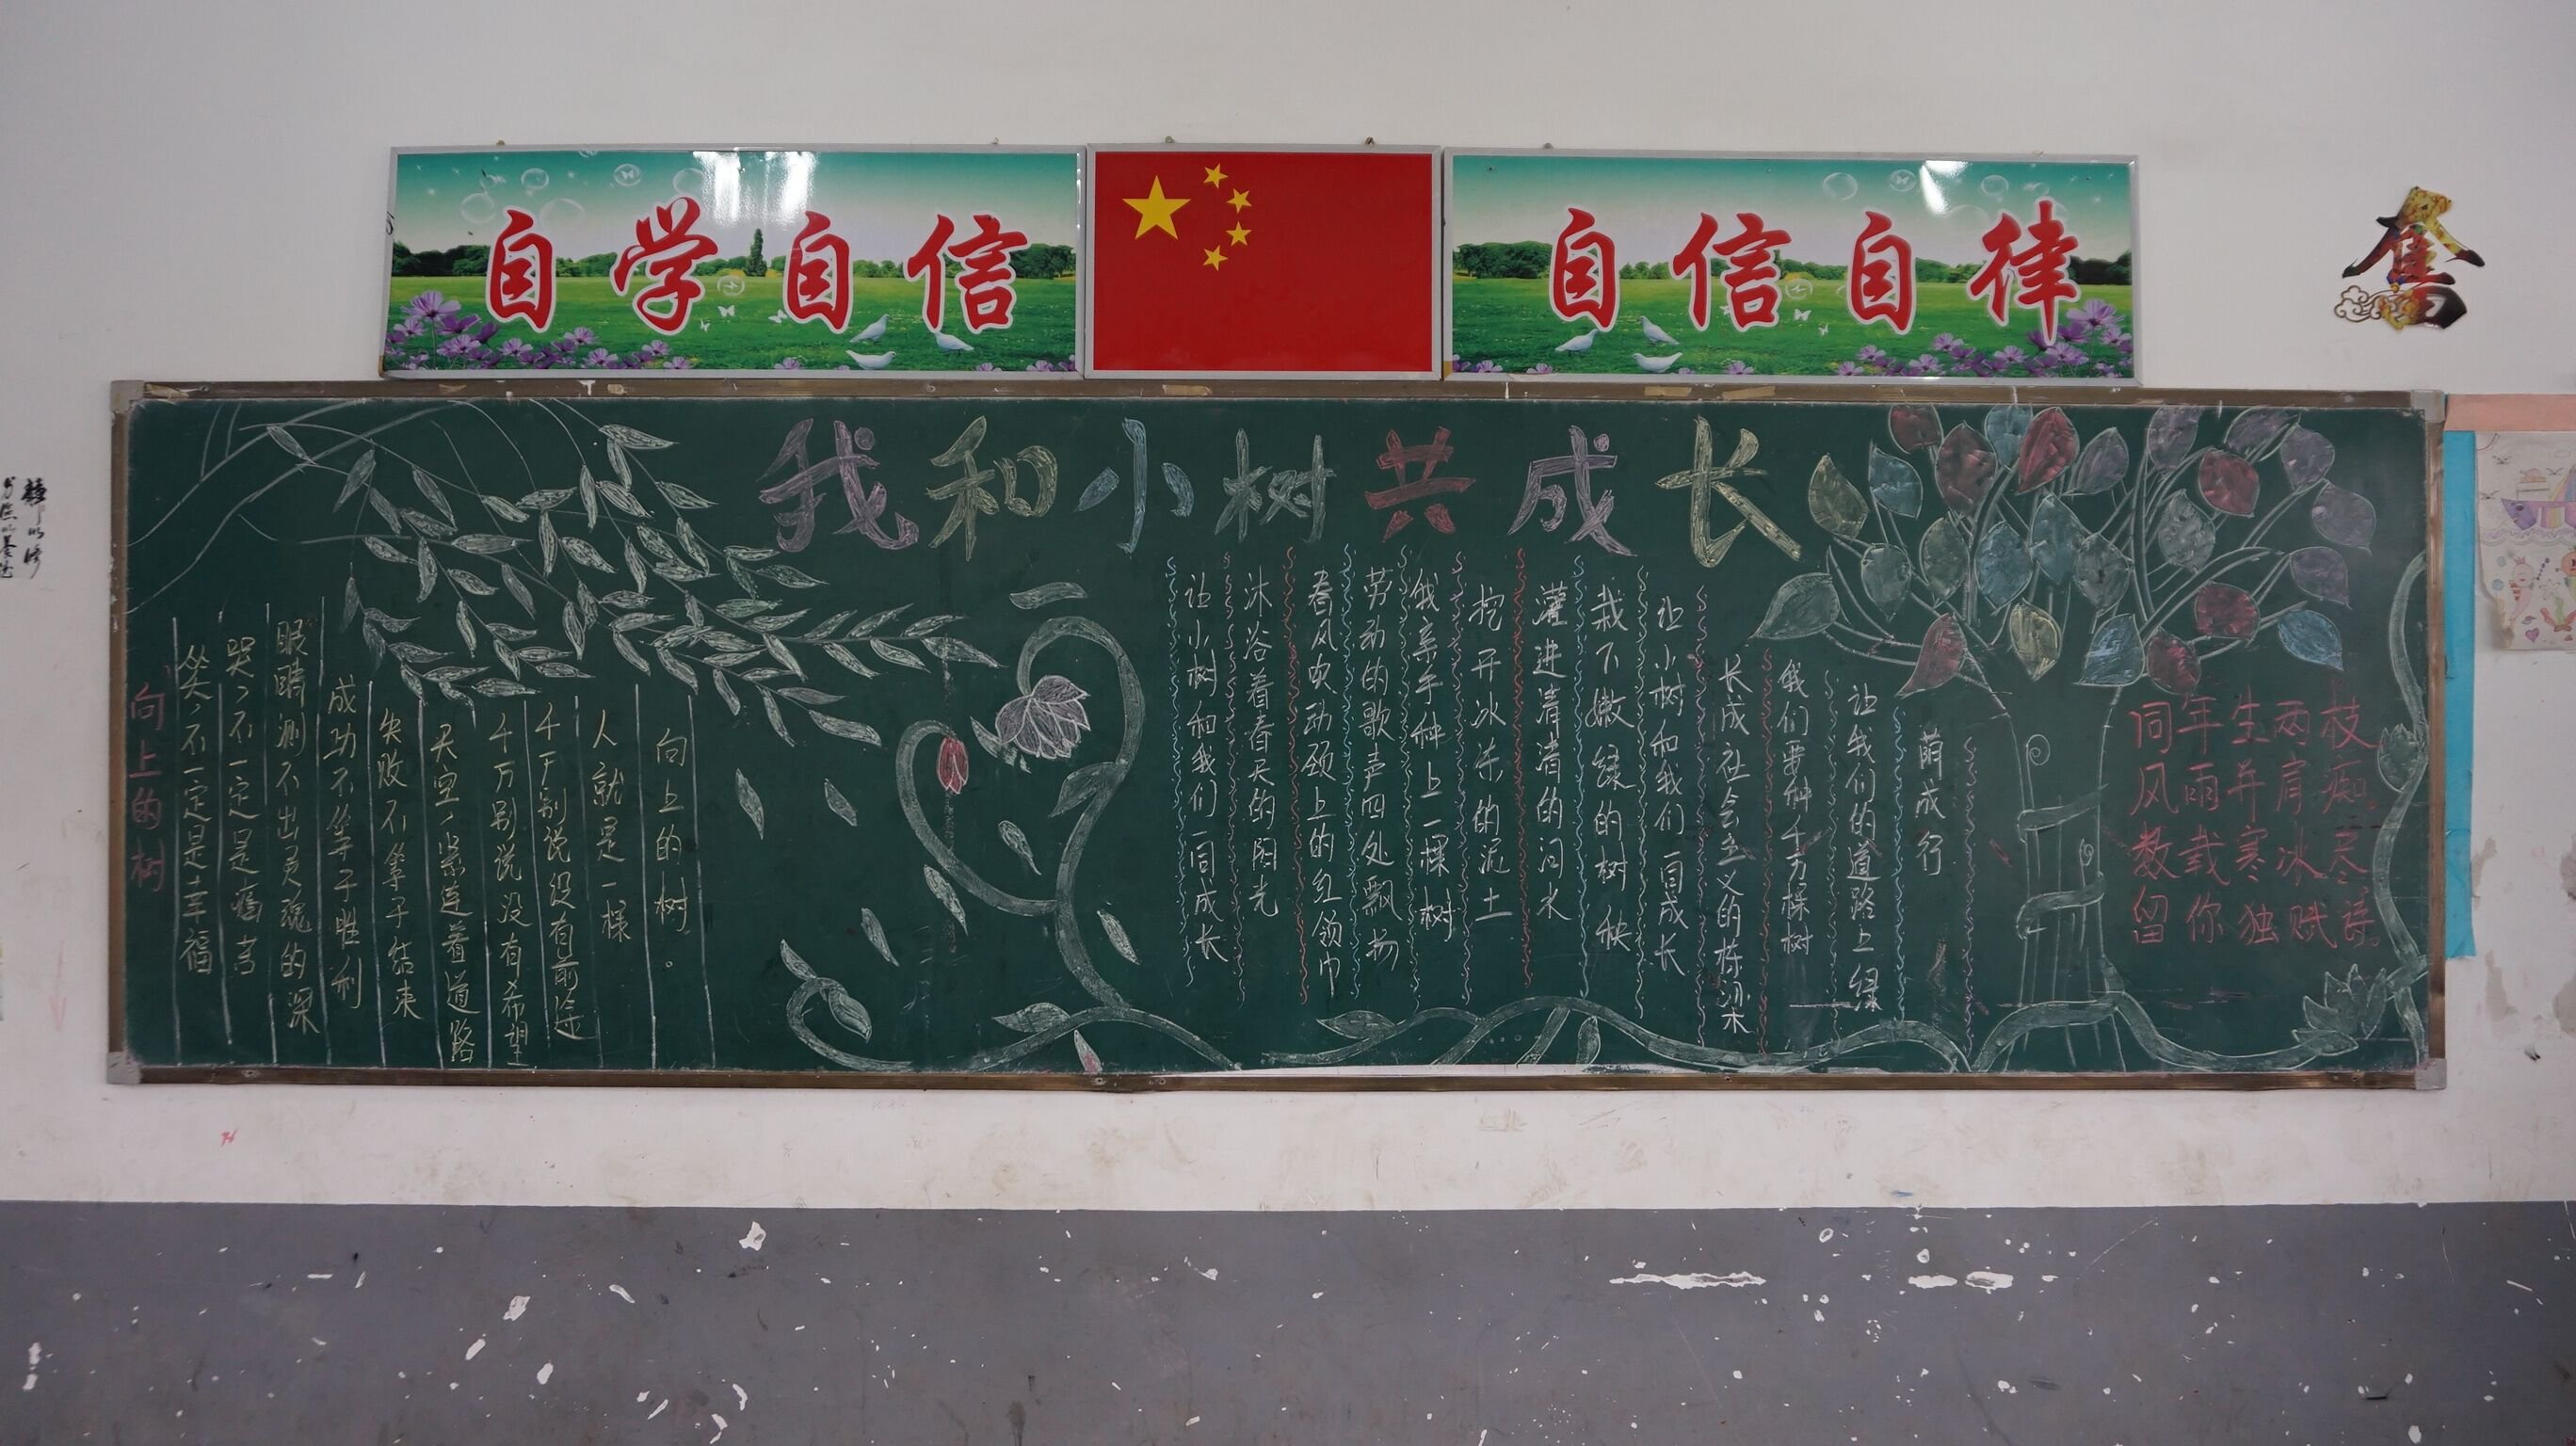 自学自信
自信自律
奮
我和小树共成长
向上的树
笑,不一定是幸福
哭,不一定是痛苦
眼睛测不出灵魂的深
成功不等于胜利
失败不等于结束
天空,紧连着道路
千万别说没有希望
千万别说没有前途
人就是一样
向上的树。
让小树和我们一同成长
沐浴着春天的阳光
春风吹动颈上的红领巾
劳动的歌声四处飘扬
我亲手种上一棵树
挖开冰冻的泥土
灌进清清的河水
栽下嫩绿的树秧
让小树和我们一同成长
长成社会主义的栋梁木
我们要种千万棵树
让我们的道路上绿
荫成行
同年生两枝
风雨并肩痴。
数载寒冰尽
留你独赋诗。